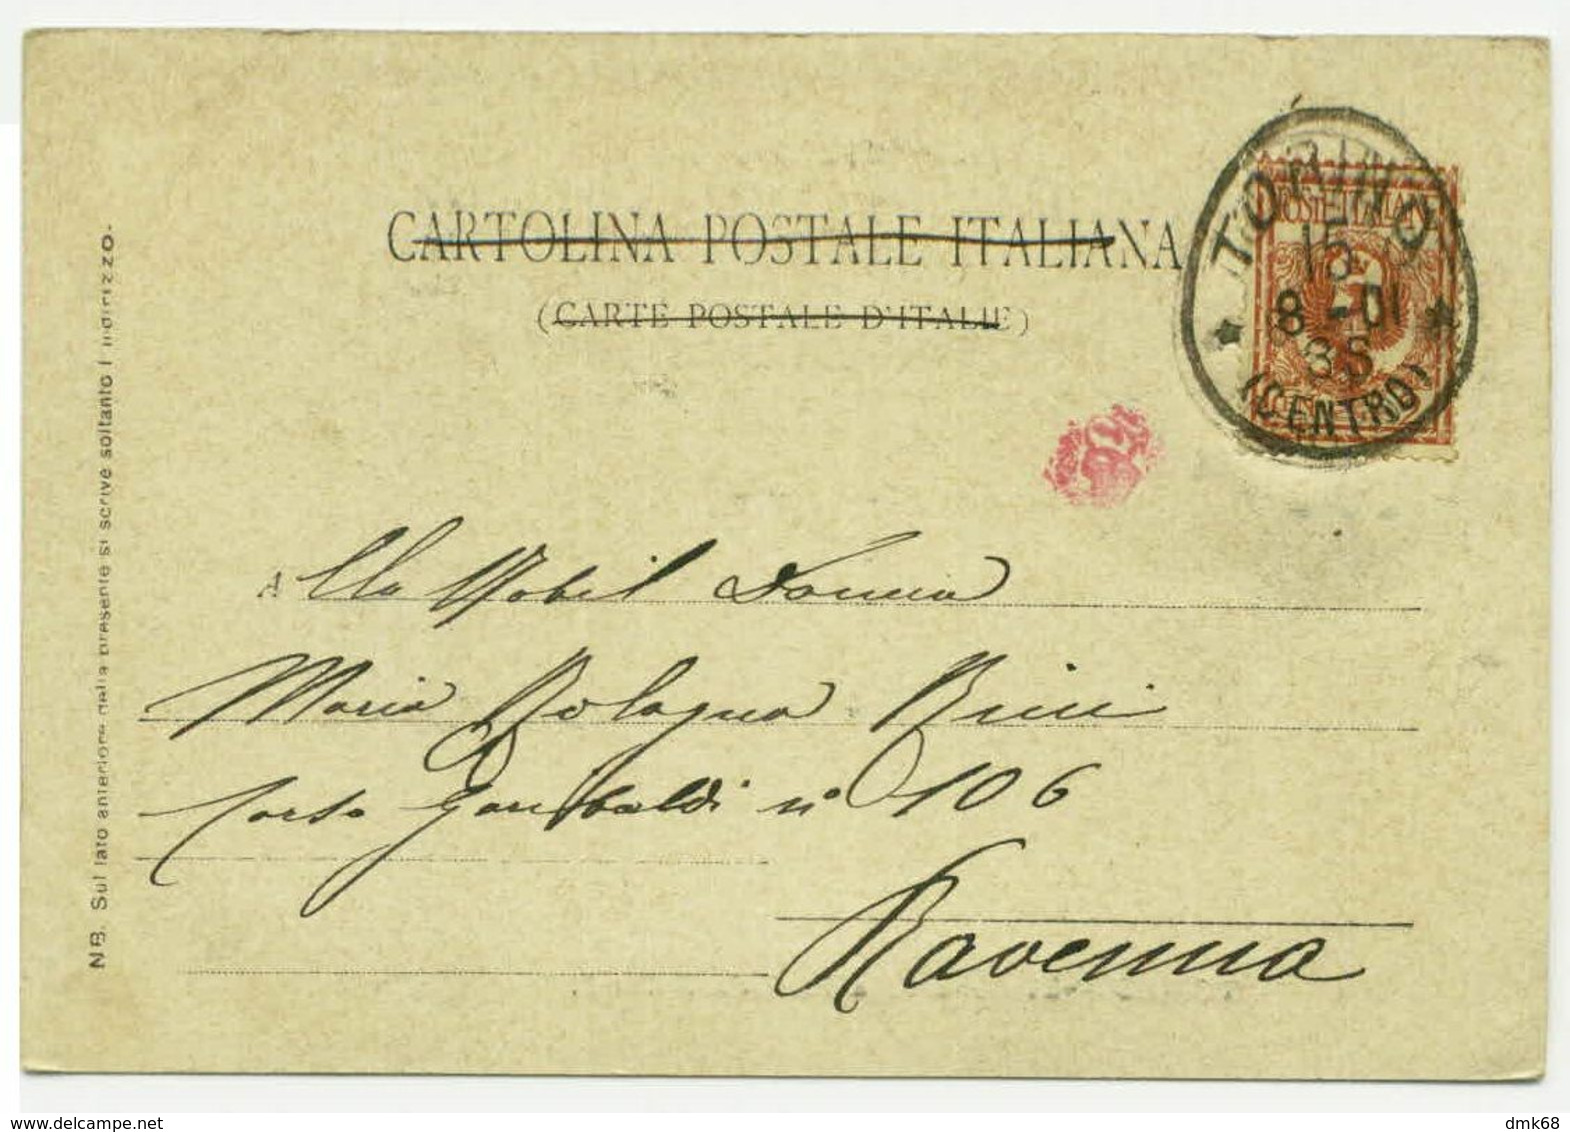 CARTOLINA POSTALE ITALIANA
(CARTE POSTALE D'ITALIE)
TORINO
15
8 - 01
8S
(CENTRO)
POSTE ITALIANE
NB. Sul lato anteriore della presente si scrive soltanto l'indirizzo.
Alla Nobil Donna
Maria Bologna
Corso Garibaldi n° 106
Ravenna
www.delcampe.net
dmk68